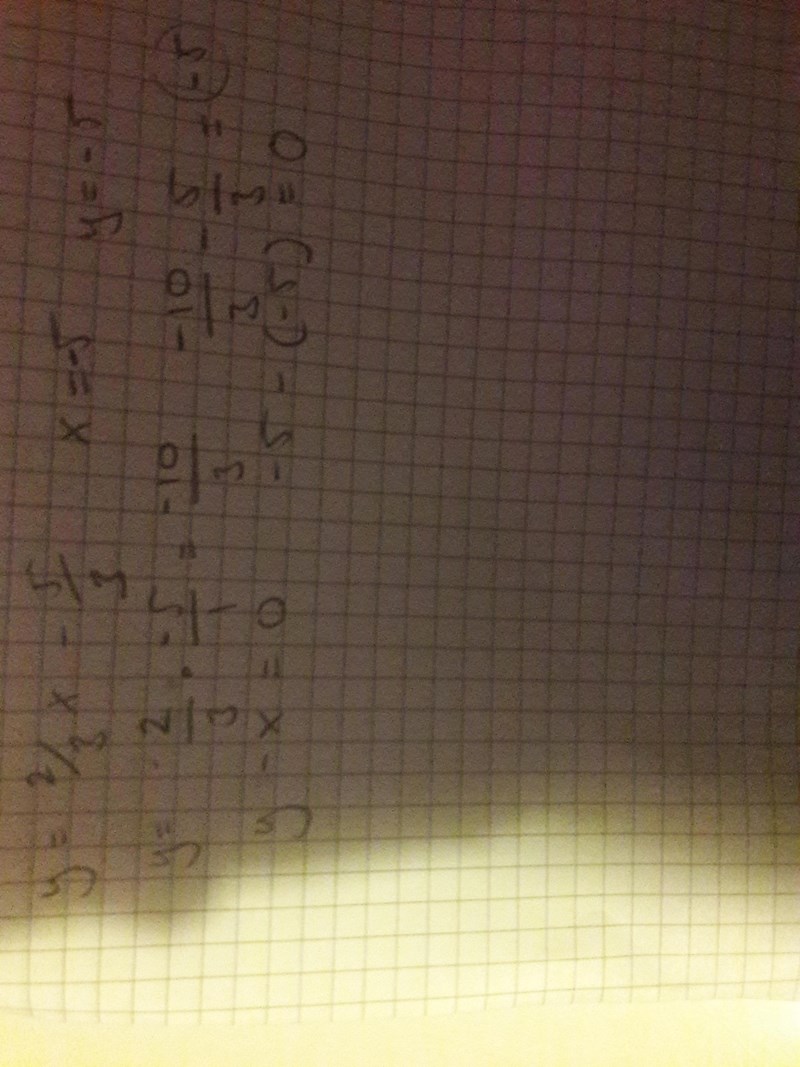 y = 2/3 x - 5/3 x = -5 y = -5
y = 2/3 · -5/1 = -10/3 -10/3 - 5/3 = (-5
y - x = 0 -5 - (-5) = 0